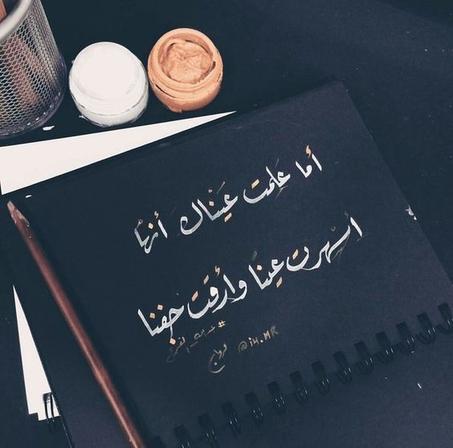 أما علمت عيناك أنها
اسهرت عينا وأرقت جفنا
@i4.MR